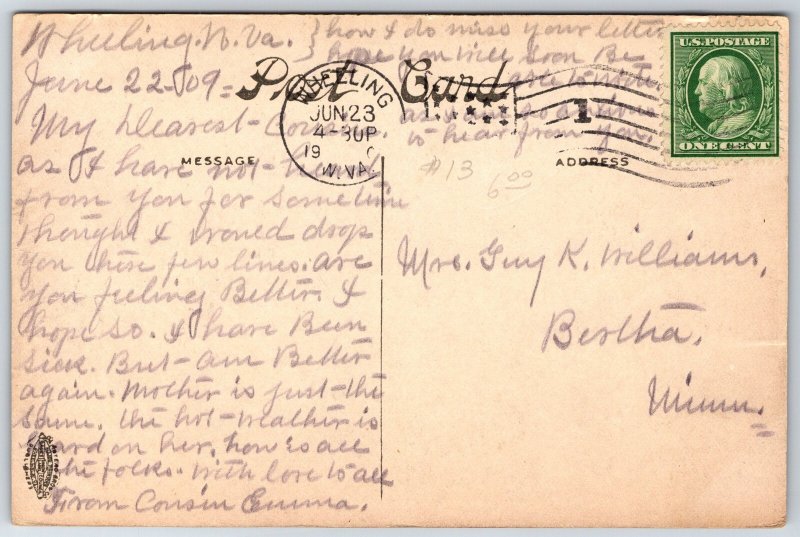 Wheeling. W. Va.
June 22-09=
My Dearest-Cousin.
as I have not-heard
from you for sometime
thought I woued drop
you these few lines. are
you feeling Better. I
hope so. I have Been
sick. But-am Better
again. Mother is just-the
same. the hot-weather is
hard on her. how is all
the folks. with love to all
From Cousin Emma.
how I do miss your letters
hope you will soon Be
able to write
is hear from you.
Post Card
WHEELING
JUN 23
4-30P
19
W.VA.
1
U.S. POSTAGE
ONE CENT
MESSAGE
ADDRESS
$13
6.00
Mrs. Guy K. Williams,
Bertha.
Minn.